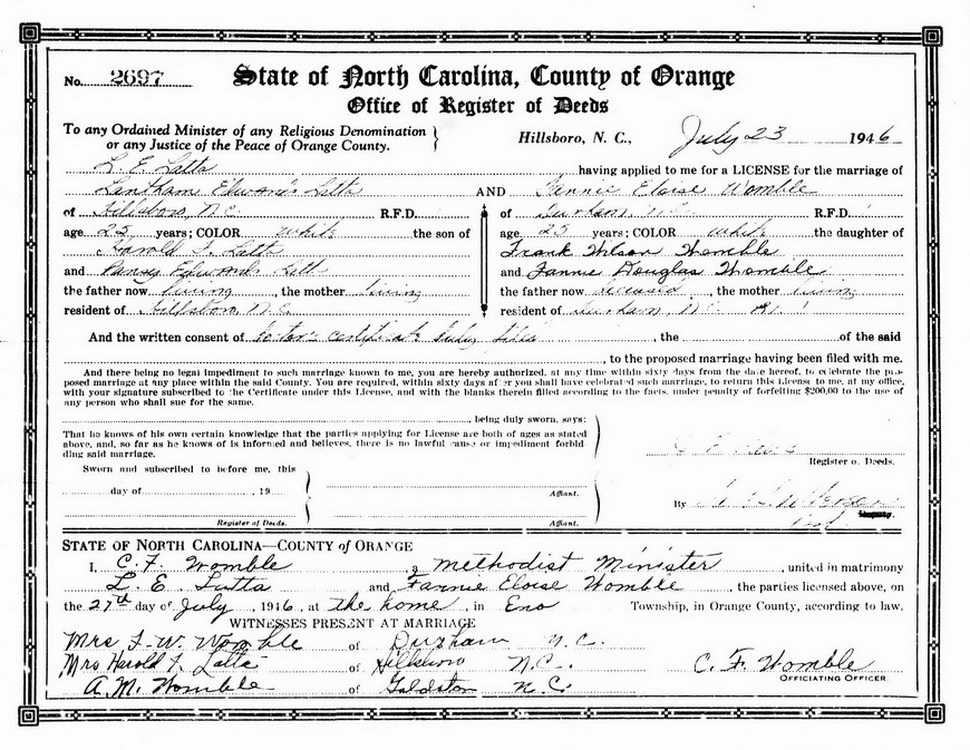 No. 2697 State of North Carolina, County of Orange
Office of Register of Deeds
To any Ordained Minister of any Religious Denomination
or any Justice of the Peace of Orange County.
Hillsboro, N. C., July 23 1946
L. E. Latta having applied to me for a LICENSE for the marriage of
Edwards Latta AND Fannie Eloise Womble
of Hillsboro, N.C. R.F.D. of Durham, N.C. R.F.D.
age 25 years; COLOR white the son of age 25 years; COLOR white the daughter of
Harold F. Latta Frank Wilson Womble
and Pansy Edwards Latt and Fannie Douglas Womble
the father now living, the mother living the father now deceased, the mother living
resident of Hillsboro, N.C. resident of Durham, N.C.
And the written consent of Doctor's certificate duly filed, the of the said
, to the proposed marriage having been filed with me.
And there being no legal impediment to such marriage known to me, you are hereby authorized, at any time within sixty days from the date hereof, to celebrate the pro-
posed marriage at any place within the said County. You are required, within sixty days after you shall have celebrated such marriage, to return this License to me, at my office,
with your signature subscribed to the Certificate under this License, and with the blanks therein filled according to the facts, under penalty of forfeiting $200.00 to the use of
any person who shall sue for the same.
, being duly sworn, says:
That he knows of his own certain knowledge that the parties applying for License are both of ages as stated
above, and, so far as he knows of is informed and believes, there is no lawful cause or impediment forbid
ding said marriage.
Register of Deeds.
Sworn and subscribed to before me, this
day of , 19
Affiant.
By
Register of Deeds. Affiant.
STATE OF NORTH CAROLINA—COUNTY of ORANGE
I, C. F. Womble, a Methodist Minister, united in matrimony
L. E. Latta and Fannie Eloise Womble, the parties licensed above, on
the 27th day of July, 1946, at the home, in Eno Township, in Orange County, according to law.
WITNESSES PRESENT AT MARRIAGE
Mrs F. W. Womble of Durham N.C.
Mrs Harold F. Latta of Hillsboro N.C. C. F. Womble
OFFICIATING OFFICER
A. M. Womble of Goldston N.C.